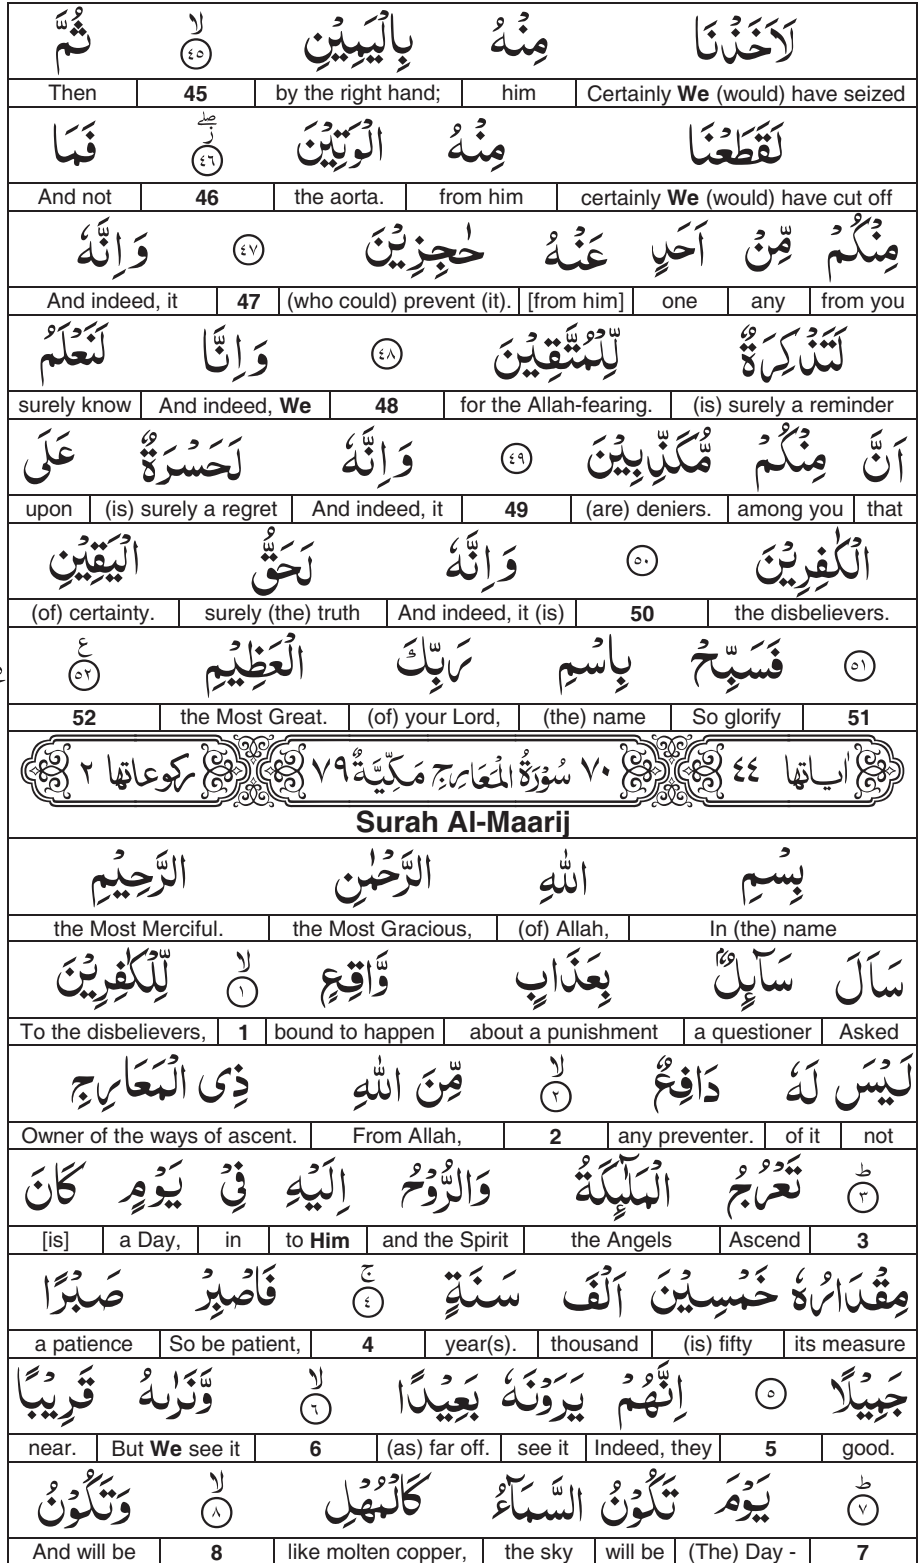 لَاَخَذْنَا مِنْهُ بِالْيَمِيْنِ ۙ ٤٥ ثُمَّ
Certainly We (would) have seized him by the right hand; 45 Then
لَقَطَعْنَا مِنْهُ الْوَتِيْنَ ٤٦ فَمَا
certainly We (would) have cut off from him the aorta. 46 And not
مِنْكُمْ مِّنْ اَحَدٍ عَنْهُ حٰجِزِيْنَ ٤٧ وَاِنَّهٗ
from you any one [from him] (who could) prevent (it). 47 And indeed, it
لَتَذْكِرَةٌ لِّلْمُتَّقِيْنَ ٤٨ وَاِنَّا لَنَعْلَمُ
(is) surely a reminder for the Allah-fearing. 48 And indeed, We surely know
اَنَّ مِنْكُمْ مُّكَذِّبِيْنَ ٤٩ وَاِنَّهٗ لَحَسْرَةٌ عَلَى
that among you (are) deniers. 49 And indeed, it (is) surely a regret upon
الْكٰفِرِيْنَ ٥٠ وَاِنَّهٗ لَحَقُّ الْيَقِيْنِ
the disbelievers. 50 And indeed, it (is) surely (the) truth (of) certainty.
٥١ فَسَبِّحْ بِاسْمِ رَبِّكَ الْعَظِيْمِ ٥٢ ع
51 So glorify (the) name (of) your Lord, the Most Great. 52
اٰياتها ٤٤ ٧٠ سُوْرَةُ الْمَعَارِجِ مَكِّيَّةٌ ٧٩ ركوعاتها ٢
Surah Al-Maarij
بِسْمِ اللهِ الرَّحْمٰنِ الرَّحِيْمِ
In (the) name (of) Allah, the Most Gracious, the Most Merciful.
سَاَلَ سَآئِلٌۢ بِعَذَابٍ وَّاقِعٍ ۙ ١ لِّلْكٰفِرِيْنَ
Asked a questioner about a punishment bound to happen 1 To the disbelievers,
لَيْسَ لَهٗ دَافِعٌ ۙ ٢ مِّنَ اللهِ ذِى الْمَعَارِجِ
not of it any preventer. 2 From Allah, Owner of the ways of ascent.
ؕ ٣ تَعْرُجُ الْمَلٰٓئِكَةُ وَالرُّوْحُ اِلَيْهِ فِيْ يَوْمٍ كَانَ
3 Ascend the Angels and the Spirit to Him in a Day, [is]
مِقْدَارُهٗ خَمْسِيْنَ اَلْفَ سَنَةٍ ۚ ٤ فَاصْبِرْ صَبْرًا
its measure (is) fifty thousand year(s). 4 So be patient, a patience
جَمِيْلًا ٥ اِنَّهُمْ يَرَوْنَهٗ بَعِيْدًا ۙ ٦ وَّنَرٰىهُ قَرِيْبًا
good. 5 Indeed, they see it (as) far off. 6 But We see it near.
ؕ ٧ يَوْمَ تَكُوْنُ السَّمَآءُ كَالْمُهْلِ ۙ ٨ وَتَكُوْنُ
7 (The) Day - will be the sky like molten copper, 8 And will be